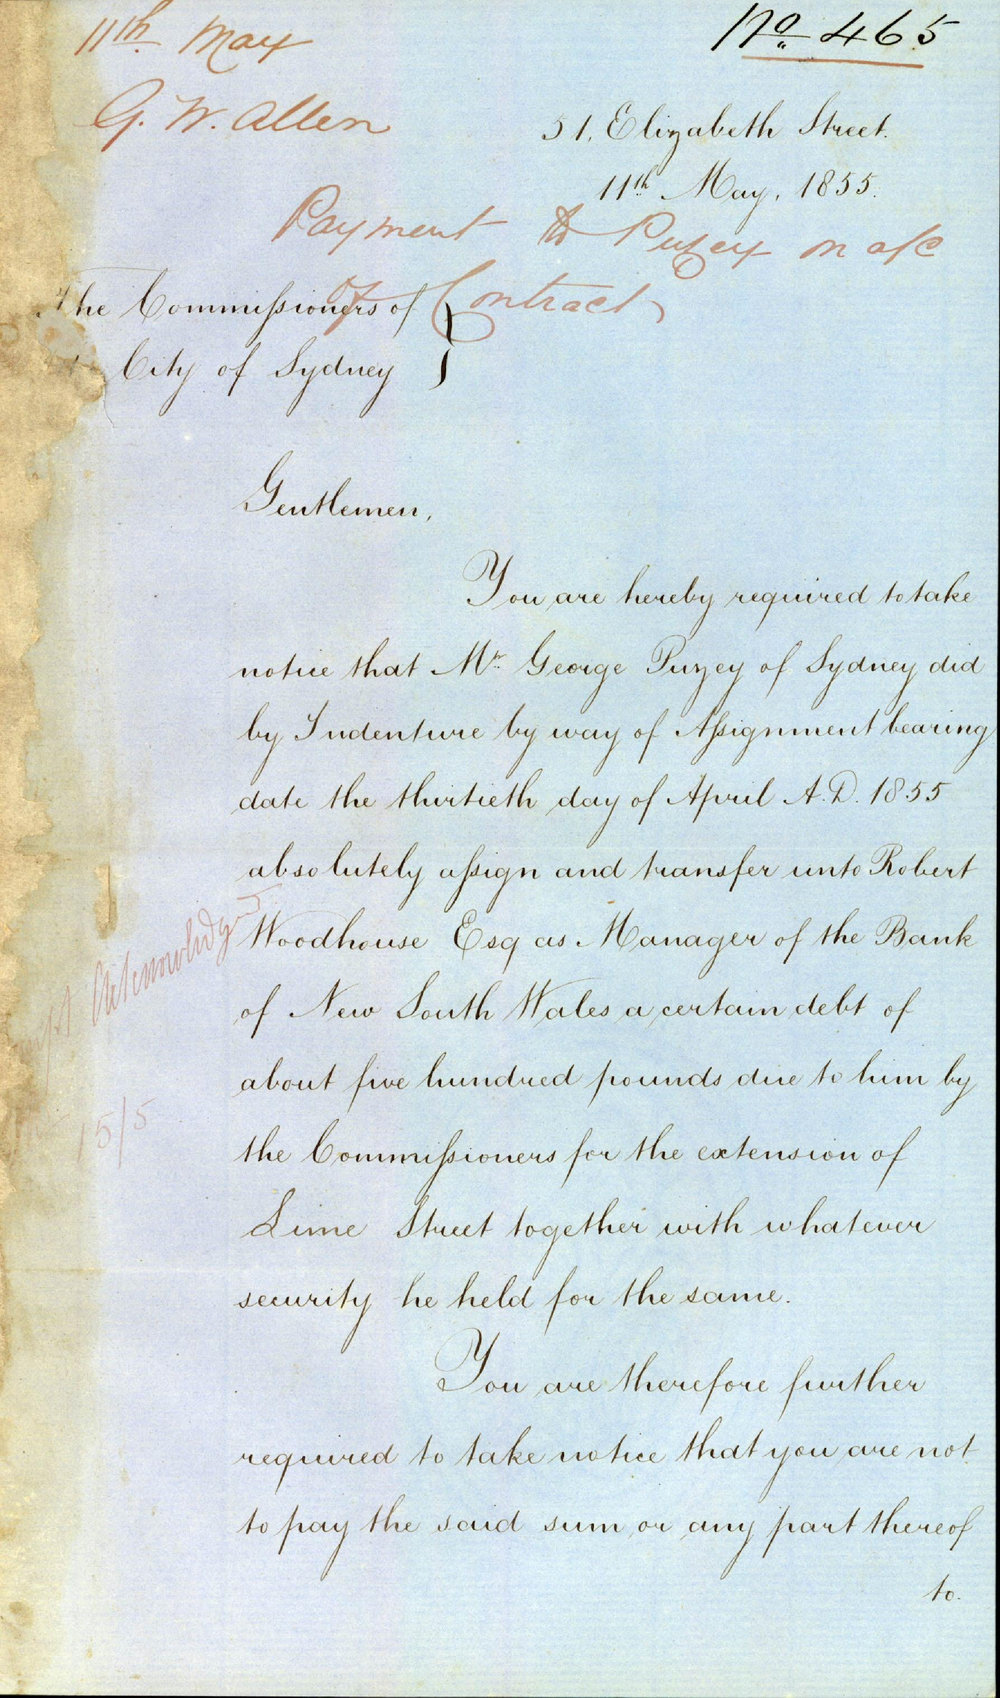 11th May
No. 465
G. W. Allen
51, Elizabeth Street.
11th May, 1855.
Payment to Puzey on a/c
of Contract
The Commissioners of
City of Sydney
Gentlemen,
You are hereby required to take
notice that Mr. George Puzey of Sydney did
by Indenture by way of Assignment bearing
date the thirtieth day of April A.D. 1855
absolutely assign and transfer unto Robert
Woodhouse Esq as Manager of the Bank
of New South Wales a certain debt of
about five hundred pounds due to him by
the Commissioners for the extension of
Lime Street together with whatever
security he held for the same.
You are therefore further
required to take notice that you are not
to pay the said sum or any part thereof
to.
Acknowledged
15/5